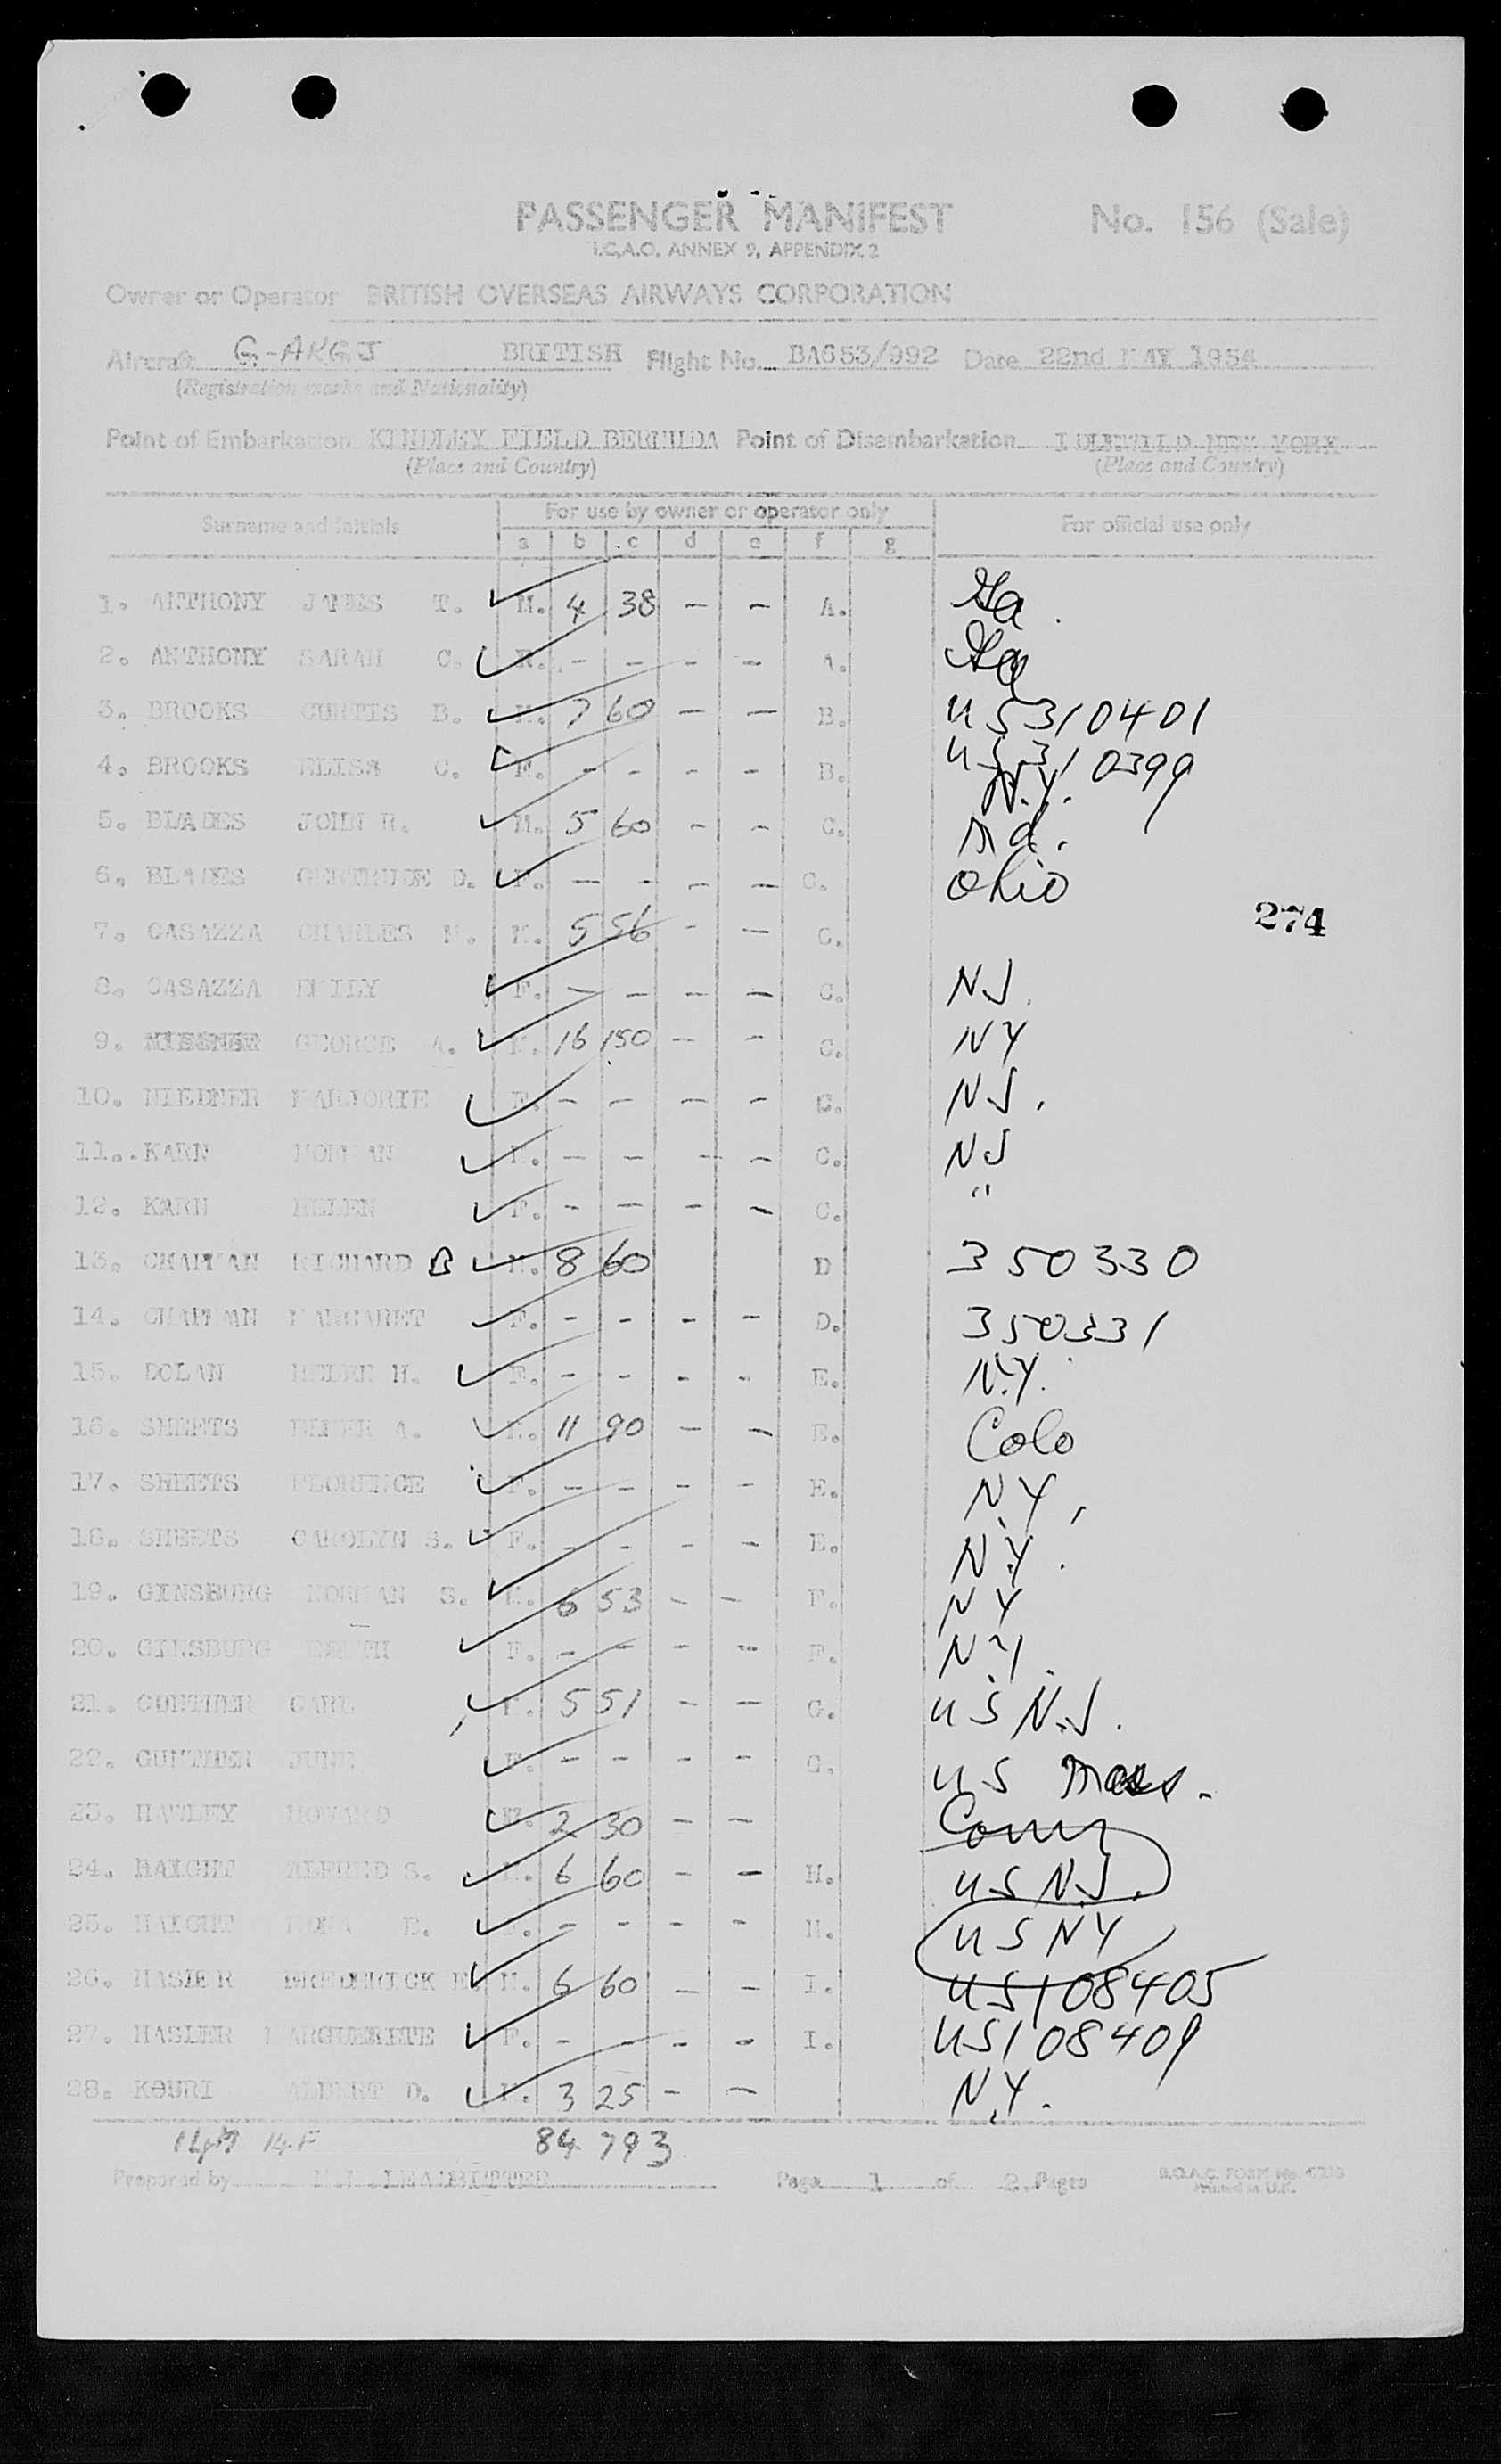 PASSENGER MANIFEST No. 156 (Sale)
I.C.A.O. ANNEX 9, APPENDIX 2
Owner or Operator BRITISH OVERSEAS AIRWAYS CORPORATION
Aircraft G-AKGJ BRITISH Flight No. BA653/992 Date 22nd MAY 1954
(Registration marks and Nationality)
Point of Embarkation KINDLEY FIELD BERMUDA Point of Disembarkation IDLEWILD NEW YORK
(Place and Country) (Place and Country)
Surname and Initials For use by owner or operator only For official use only
a b c d e f g
1. ANTHONY JAMES T. M. 4 38 - - A. Ga.
2. ANTHONY SARAH C. - - - - A. Ga
3. BROOKS CURTIS B. M. 7 60 - - B. US310401
4. BROOKS ELISA C. F. - - - - B. US310399
N.Y.
5. BLADES JOHN R. M. 5 60 - - C. Md.
6. BLADES GERTRUDE D. F. - - - - C. Ohio
274
7. CASAZZA CHARLES M. 5 56 - - C.
8. CASAZZA EMILY F. - - - - C. NJ.
9. GEORGE A. M. 16 150 - - C. NY
10. NIEDNER MARJORIE F. - - - - C. NJ.
11. KARN NORMAN M. - - - - C. NJ
12. KARN HELEN F. - - - - C. "
13. CHAPMAN RICHARD B M. 8 60 D 350330
14. CHAPMAN MARGARET F. - - - - D. 350331
15. DOLAN HELEN H. F. - - - - E. N.Y.
16. SHEETS ELMER A. M. 11 90 - - E. Colo
17. SHEETS FLORENCE F. - - - - E. NY,
18. SHEETS CAROLYN S. F. - - - - E. NY.
19. GINSBURG NORMAN S. M. 6 53 - - F. NY
20. GINSBURG F. - - - - F. NY.
21. GUNTHER CARL M. 5 51 - - G. US N.J.
22. GUNTHER JUNE F. - - - - G. US Mass.
23. HAWLEY HOWARD M. 2 30 - - Conn
24. HAIGHT ALFRED S. M. 6 60 - - H. US NJ.
25. HAIGHT E. F. - - - - H. US NY
26. HASLER FREDERICK E. M. 6 60 - - I. US108405
27. HASLER MARGUERITE F. - - - - I. US108409
28. KOURI ALBERT D. M. 3 25 - - N.Y.
14M 14F 84 793
Prepared by LEADBITTER Page 1 of 2 Pages B.O.A.C. FORM No.
Printed in U.K.